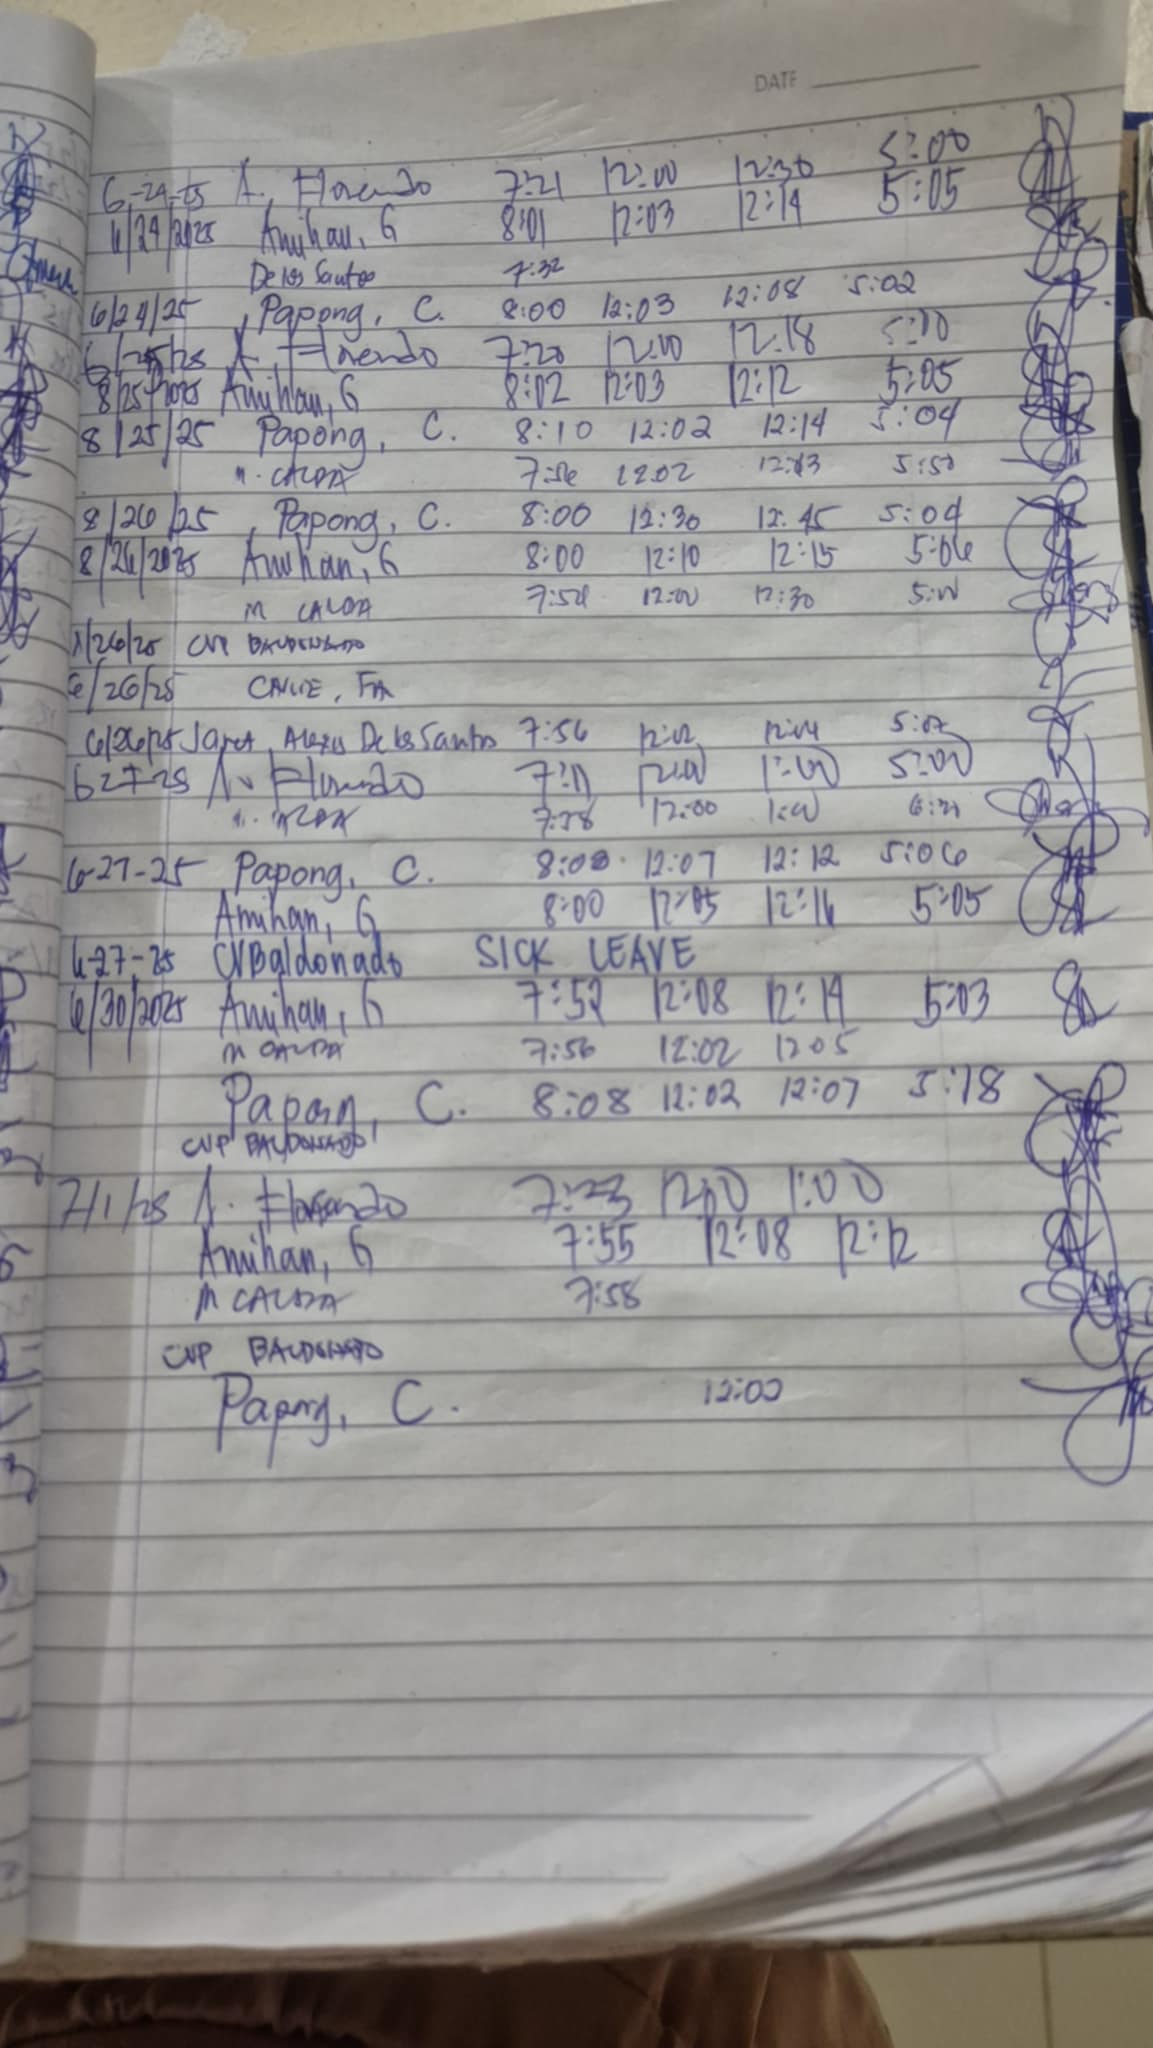 DATE
6-24-25 A. Florendo 7:21 12:00 12:30 5:00
6/24/2025 Amihan, G 8:01 12:03 12:14 5:05
De los Santos 7:32
6/24/25 Papong, C. 8:00 12:03 12:08 5:02
6/25/25 A. Florendo 7:20 12:00 12:18 5:10
8/25/2025 Amihan, G 8:02 12:03 12:12 5:05
8/25/25 Papong, C. 8:10 12:02 12:14 5:04
M. CALDA 7:56 12:02 12:13 5:50
8/26/25 Papong, C. 8:00 12:30 12:45 5:04
8/26/2025 Amihan, G 8:00 12:10 12:15 5:06
M CALDA 12:00 12:30 5:00
/26/25 CVP BALDONADO
6/26/25
6/26/25 Alexis De los Santos 7:56
6-27-25 A. Florendo 7:11 12:00 1:00 5:00
CALDA 7:58 12:00 1:00
6-27-25 Papong, C. 8:00 12:07 12:12 5:06
Amihan, G 8:00 12:05 12:16 5:05
6-27-25 CVBaldonado SICK LEAVE
6/30/2025 Amihan, G 7:52 12:08 12:14 5:03
M CALDA 7:56 12:02 12 05
Papong, C. 8:08 12:02 12:07 5:18
CVP BALDONADO
7/1/25 A. Florendo 7:23 12:00 1:00
Amihan, G 7:55 12:08 12:12
M CALDA 7:58
CVP BALDONADO
Papong, C. 12:00